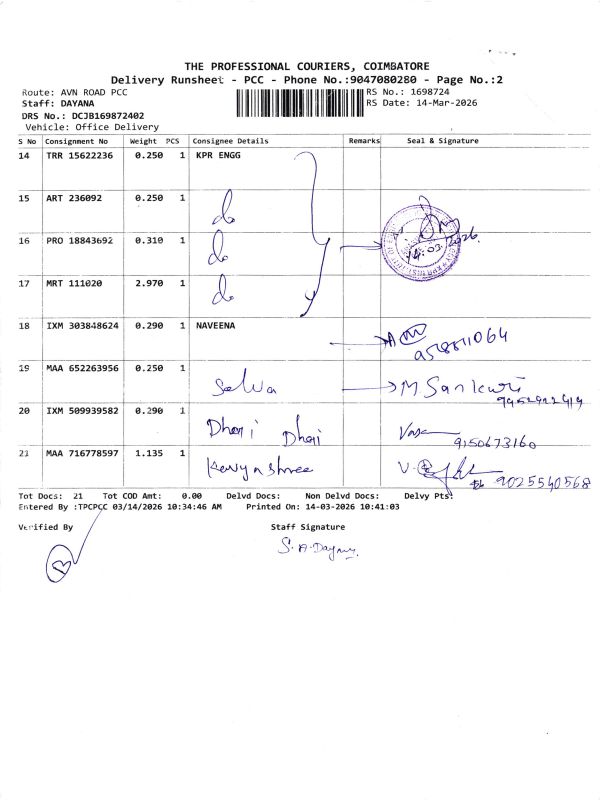 THE PROFESSIONAL COURIERS, COIMBATORE
Delivery Runsheet - PCC - Phone No.:9047080280 - Page No.:2
Route: AVN ROAD PCC RS No.: 1698724
Staff: DAYANA RS Date: 14-Mar-2026
DRS No.: DCJB169872402
Vehicle: Office Delivery
S No Consignment No Weight PCS Consignee Details Remarks Seal & Signature
14 TRR 15622236 0.250 1 KPR ENGG
15 ART 236092 0.250 1 do
16 PRO 18843692 0.310 1 do 14.03.2026
17 MRT 111020 2.970 1 do
18 IXM 303848624 0.290 1 NAVEENA
19 MAA 652263956 0.250 1 Selva M Sankari
20 IXM 509939582 0.290 1 Dhari Dhari 9150673160
21 MAA 716778597 1.135 1 Kavyashree 9025540568
Tot Docs: 21 Tot COD Amt: 0.00 Delvd Docs: Non Delvd Docs: Delvy Pts:
Entered By :TPCPCC 03/14/2026 10:34:46 AM Printed On: 14-03-2026 10:41:03
Verified By Staff Signature
S.A.Dayana